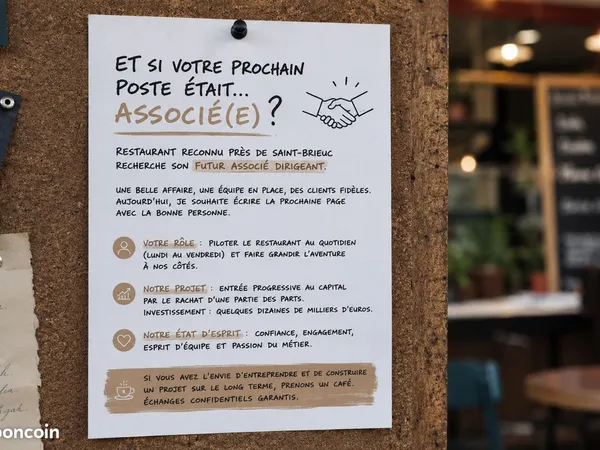 ET SI VOTRE PROCHAIN
POSTE ÉTAIT...
ASSOCIÉ(E) ?
RESTAURANT RECONNU PRÈS DE SAINT-BRIEUC
RECHERCHE SON FUTUR ASSOCIÉ DIRIGEANT.
UNE BELLE AFFAIRE, UNE ÉQUIPE EN PLACE, DES CLIENTS FIDÈLES.
AUJOURD'HUI, JE SOUHAITE ÉCRIRE LA PROCHAINE PAGE
AVEC LA BONNE PERSONNE.
VOTRE RÔLE : PILOTER LE RESTAURANT AU QUOTIDIEN
(LUNDI AU VENDREDI) ET FAIRE GRANDIR L'AVENTURE
À NOS CÔTÉS.
NOTRE PROJET : ENTRÉE PROGRESSIVE AU CAPITAL
PAR LE RACHAT D'UNE PARTIE DES PARTS.
INVESTISSEMENT : QUELQUES DIZAINES DE MILLIERS D'EUROS.
NOTRE ÉTAT D'ESPRIT : CONFIANCE, ENGAGEMENT,
ESPRIT D'ÉQUIPE ET PASSION DU MÉTIER.
SI VOUS AVEZ L'ENVIE D'ENTREPRENDRE ET DE CONSTRUIRE
UN PROJET SUR LE LONG TERME, PRENONS UN CAFÉ.
ÉCHANGES CONFIDENTIELS GARANTIS.
boncoin